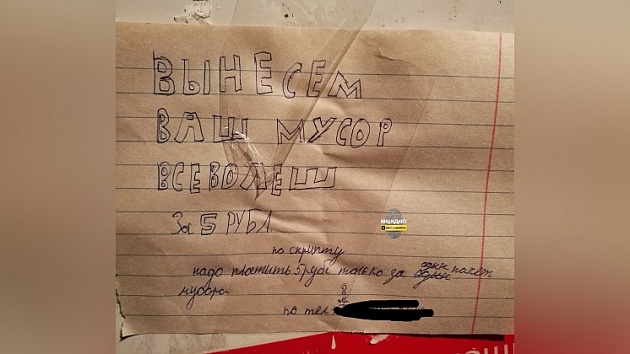 ВЫНЕСЕМ
ВАШ МУСОР
ВСЕВОЛЕШ
За 5 РУБЛ
по скрипту
надо платить 5 руб только за один пакет
мусора
по тел